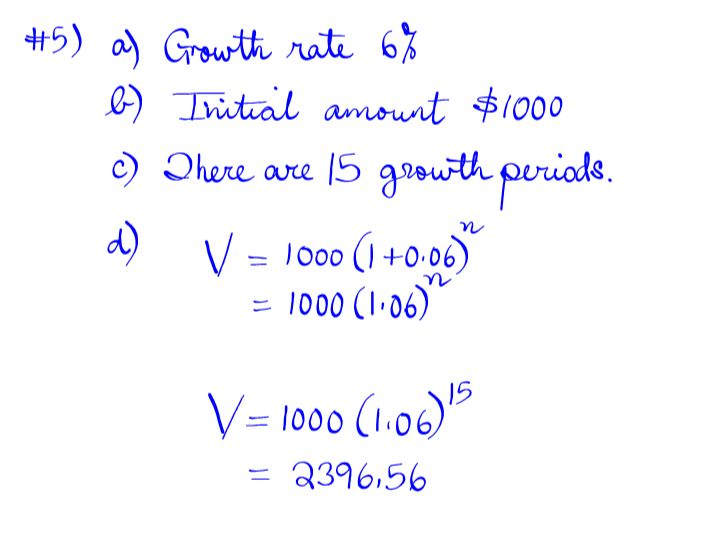 #5) a) Growth rate 6%
b) Initial amount $1000
c) There are 15 growth periods.
d) V = 1000 (1+0.06)^n
= 1000 (1.06)^n
V = 1000 (1.06)^15
= 2396.56